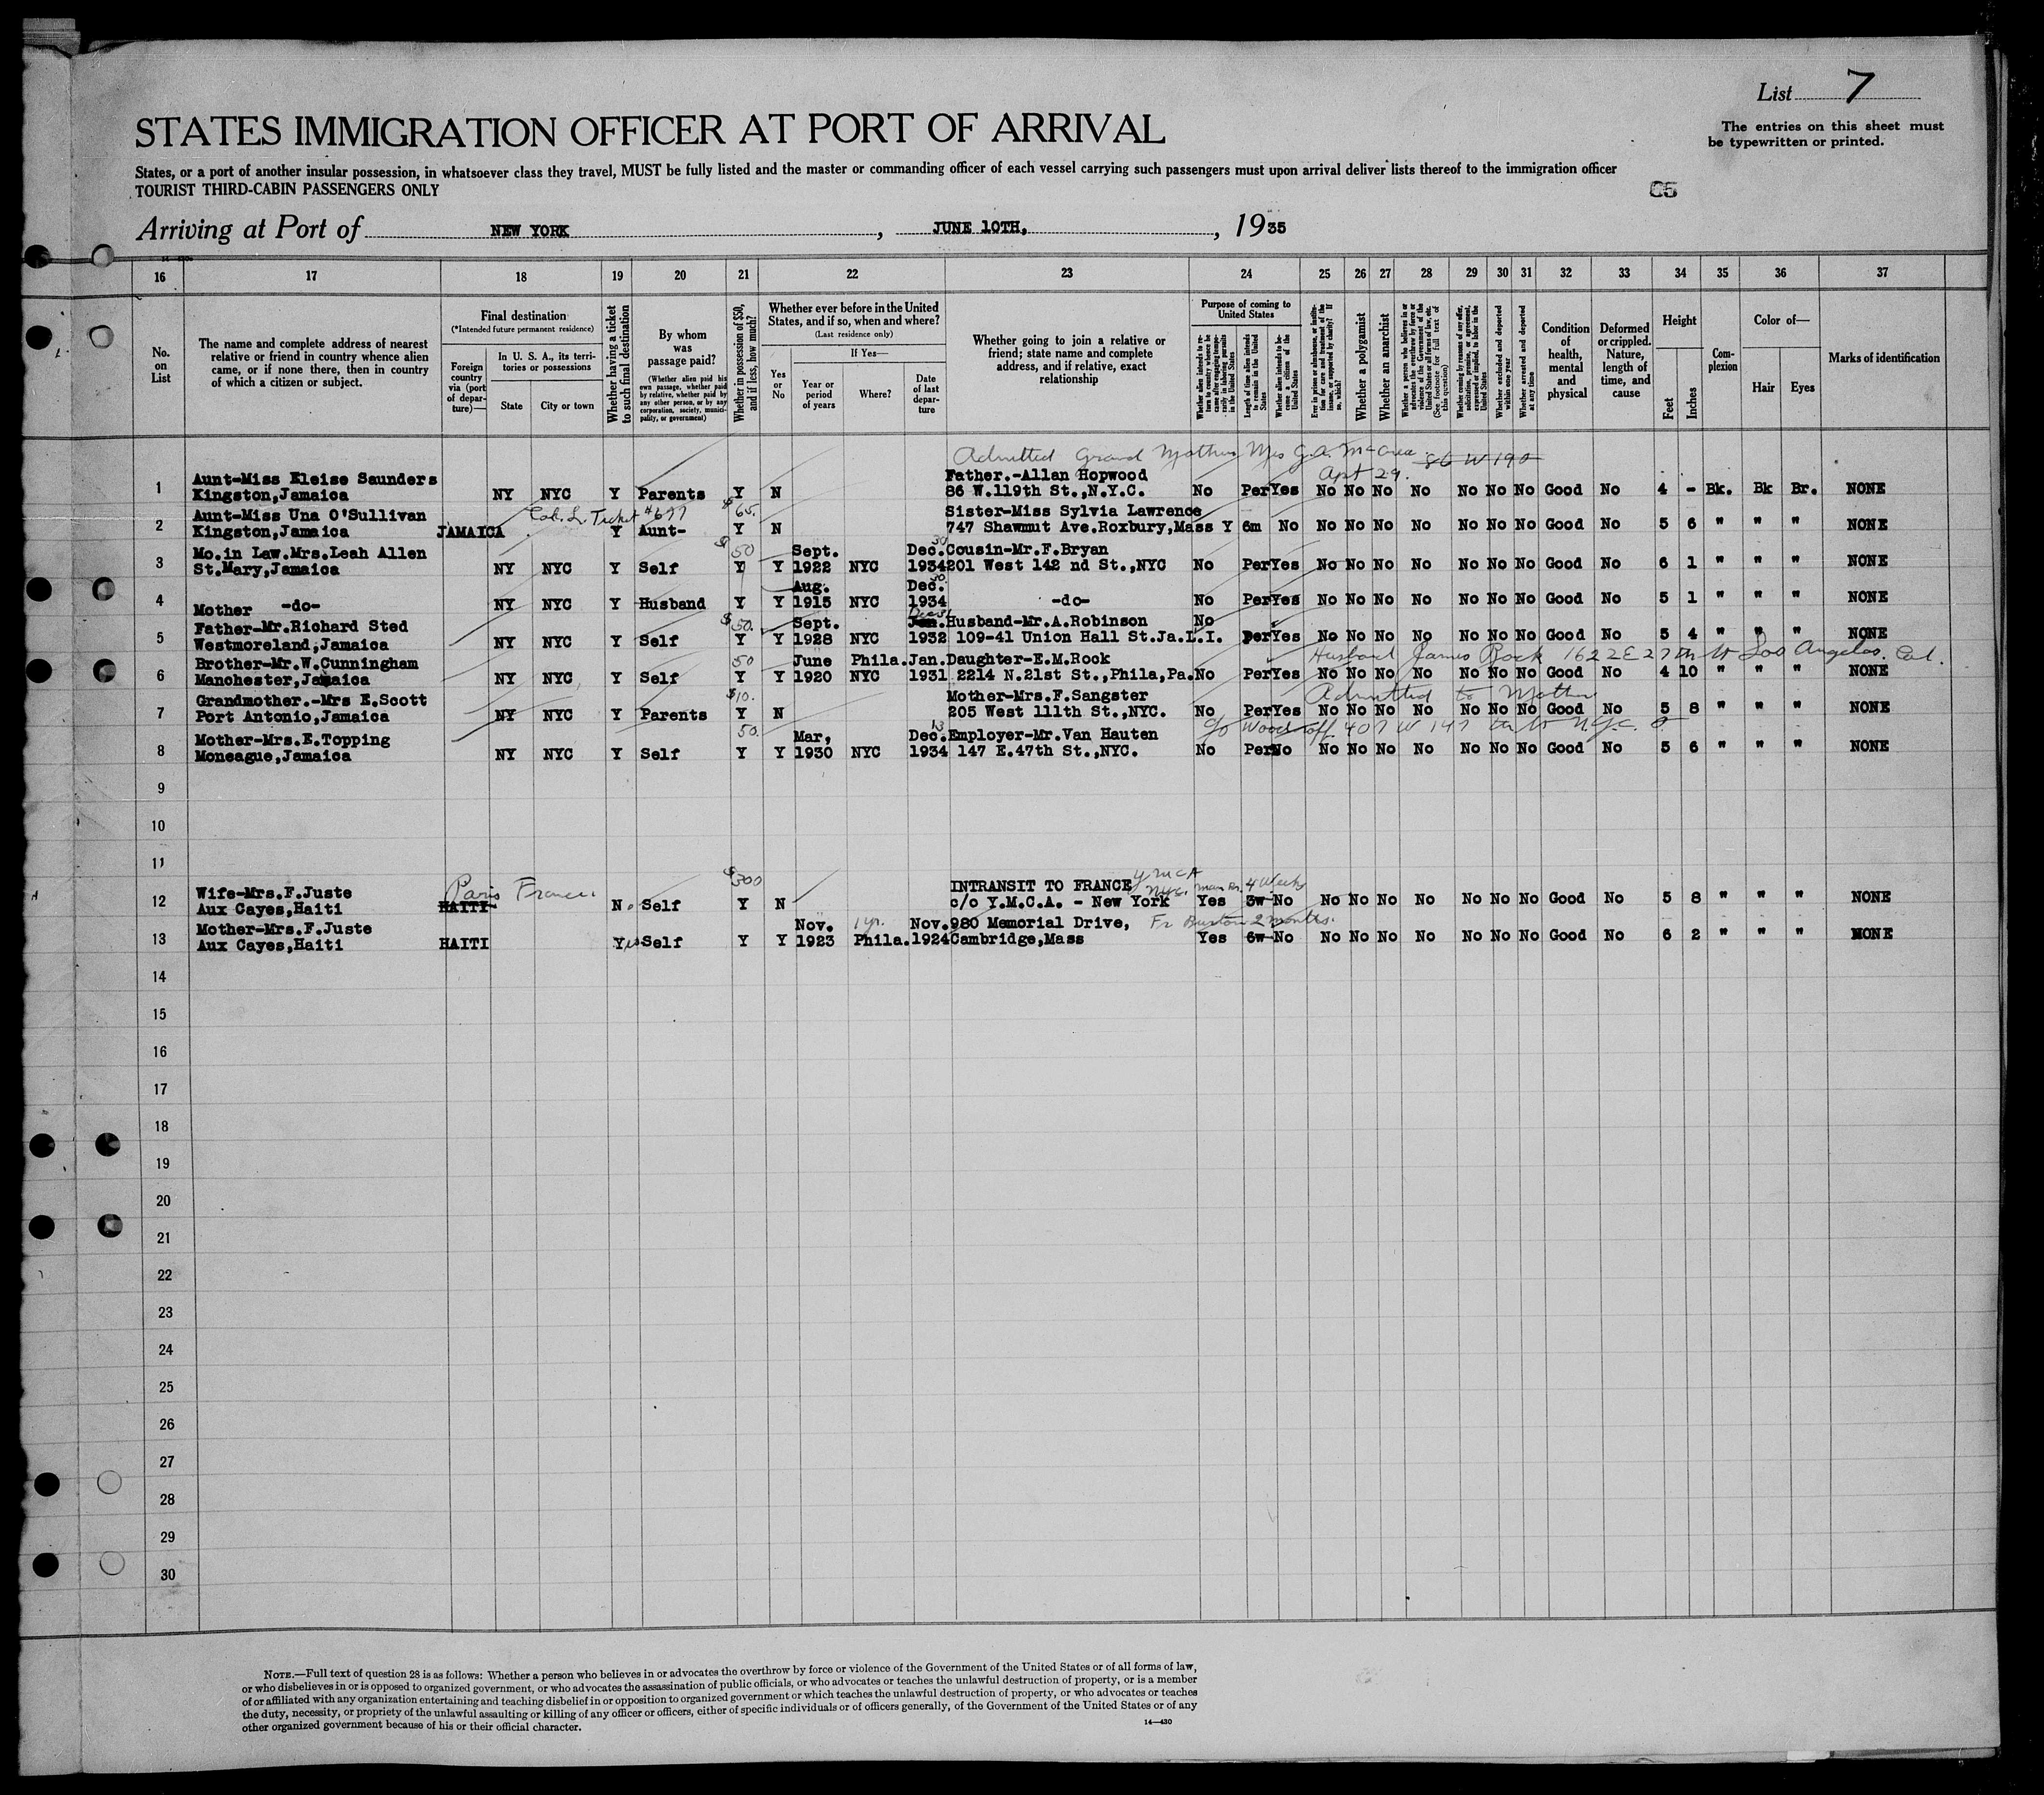 List 7
The entries on this sheet must
be typewritten or printed.
STATES IMMIGRATION OFFICER AT PORT OF ARRIVAL
States, or a port of another insular possession, in whatsoever class they travel, MUST be fully listed and the master or commanding officer of each vessel carrying such passengers must upon arrival deliver lists thereof to the immigration officer
TOURIST THIRD-CABIN PASSENGERS ONLY
C5
Arriving at Port of NEW YORK, JUNE 10TH, 1935
16 17 18 19 20 21 22 23 24 25 26 27 28 29 30 31 32 33 34 35 36 37
No. on List
The name and complete address of nearest relative or friend in country whence alien came, or if none there, then in country of which a citizen or subject.
Final destination
(*Intended future permanent residence)
Foreign country via (port of departure)—
In U. S. A., its territories or possessions
State
City or town
Whether having a ticket to such final destination
By whom was passage paid?
(Whether alien paid his own passage, whether paid by relative, whether paid by any other person, or by any corporation, society, municipality, or government)
Whether in possession of $50, and if less, how much?
Whether ever before in the United States, and if so, when and where?
(Last residence only)
Yes or No
If Yes—
Year or period of years
Where?
Date of last departure
Whether going to join a relative or friend; state name and complete address, and if relative, exact relationship
Purpose of coming to United States
Whether alien intends to return to country whence he came after engaging temporarily in laboring pursuits in the United States
Length of time alien intends to remain in the United States
Whether alien intends to become a citizen of the United States
Ever in prison or almshouse, or institution for care and treatment of the insane, or supported by charity? If so, which?
Whether a polygamist
Whether an anarchist
Whether a person who believes in or advocates the overthrow by force or violence of the Government of the United States or all forms of law, etc. (See footnote for full text of this question)
Whether coming by reasons of any offer, solicitation, promise, or agreement, expressed or implied, to labor in the United States
Whether excluded and deported within one year
Whether arrested and deported at any time
Condition of health, mental and physical
Deformed or crippled. Nature, length of time, and cause
Height
Feet
Inches
Complexion
Color of—
Hair
Eyes
Marks of identification
Admitted Grand Mother Mrs G.A. McCrea 86 W 190
Apt 29.
1 Aunt-Miss Eleise Saunders Father.-Allan Hopwood
Kingston,Jamaica NY NYC Y Parents Y N 86 W.119th St.,N.Y.C. No Per Yes No No No No No No No Good No 4 - Bk. Bk Br. NONE
Ticket #697 $65.
2 Aunt-Miss Una O'Sullivan Sister-Miss Sylvia Lawrence
Kingston,Jamaica JAMAICA Y Aunt- Y N 747 Shawmut Ave.Roxbury,Mass Y 6m No No No No No No No No Good No 5 6 " " " NONE
$50 30
3 Mo.in Law.Mrs.Leah Allen Sept. Dec. Cousin-Mr.F.Bryan
St.Mary,Jamaica NY NYC Y Self Y Y 1922 NYC 1934 201 West 142 nd St.,NYC No Per Yes No No No No No No No Good No 6 1 " " " NONE
Aug. Dec. 30.
4 Mother -do- NY NYC Y Husband Y Y 1915 NYC 1934 -do- No Per Yes No No No No No No No Good No 5 1 " " " NONE
$50.
5 Father-Mr.Richard Sted Sept. Jan. Husband-Mr.A.Robinson No
Westmoreland,Jamaica NY NYC Y Self Y Y 1928 NYC 1932 109-41 Union Hall St.Ja.L.I. Per Yes No No No No No No No Good No 5 4 " " " NONE
Husband James Rock 1622 E 27th St Los Angelos. Cal.
50
6 Brother-Mr.W.Cunningham June Phila. Jan. Daughter-E.M.Rock
Manchester,Jamaica NY NYC Y Self Y Y 1920 NYC 1931 2214 N.21st St.,Phila,Pa. No Per Yes No No No No No No No Good No 4 10 " " " NONE
$10. Admitted to Mother
7 Grandmother.-Mrs E.Scott Mother-Mrs.F.Sangster
Port Antonio,Jamaica NY NYC Y Parents Y N 205 West 111th St.,NYC. No Per Yes No No No No No No No Good No 5 8 " " " NONE
50. 13 c/o Woodroff 407 W 147 th St N.Y.C.
8 Mother-Mrs.E.Topping Mar, Dec. Employer-Mr.Van Hauten
Moneague,Jamaica NY NYC Y Self Y Y 1930 NYC 1934 147 E.47th St.,NYC. No Per No No No No No No No No Good No 5 6 " " " NONE
9
10
11
Paris France. $300 Y M C A NYC. 4 Weeks
12 Wife-Mrs.F.Juste INTRANSIT TO FRANCE
Aux Cayes,Haiti HAITI N. Self Y N c/o Y.M.C.A. - New York Yes 3w No No No No No No No No Good No 5 8 " " " NONE
13 Mother-Mrs.F.Juste Nov. 1 yr. Nov. 980 Memorial Drive, 2 months.
Aux Cayes,Haiti HAITI Yes Self Y Y 1923 Phila. 1924 Cambridge,Mass Yes 6w No No No No No No No No Good No 6 2 " " " NONE
14
15
16
17
18
19
20
21
22
23
24
25
26
27
28
29
30
NOTE.—Full text of question 28 is as follows: Whether a person who believes in or advocates the overthrow by force or violence of the Government of the United States or of all forms of law,
or who disbelieves in or is opposed to organized government, or who advocates the assassination of public officials, or who advocates or teaches the unlawful destruction of property, or is a member
of or affiliated with any organization entertaining and teaching disbelief in or opposition to organized government or which teaches the unlawful destruction of property, or who advocates or teaches
the duty, necessity, or propriety of the unlawful assaulting or killing of any officer or officers, either of specific individuals or of officers generally, of the Government of the United States or of any
other organized government because of his or their official character.
14—430